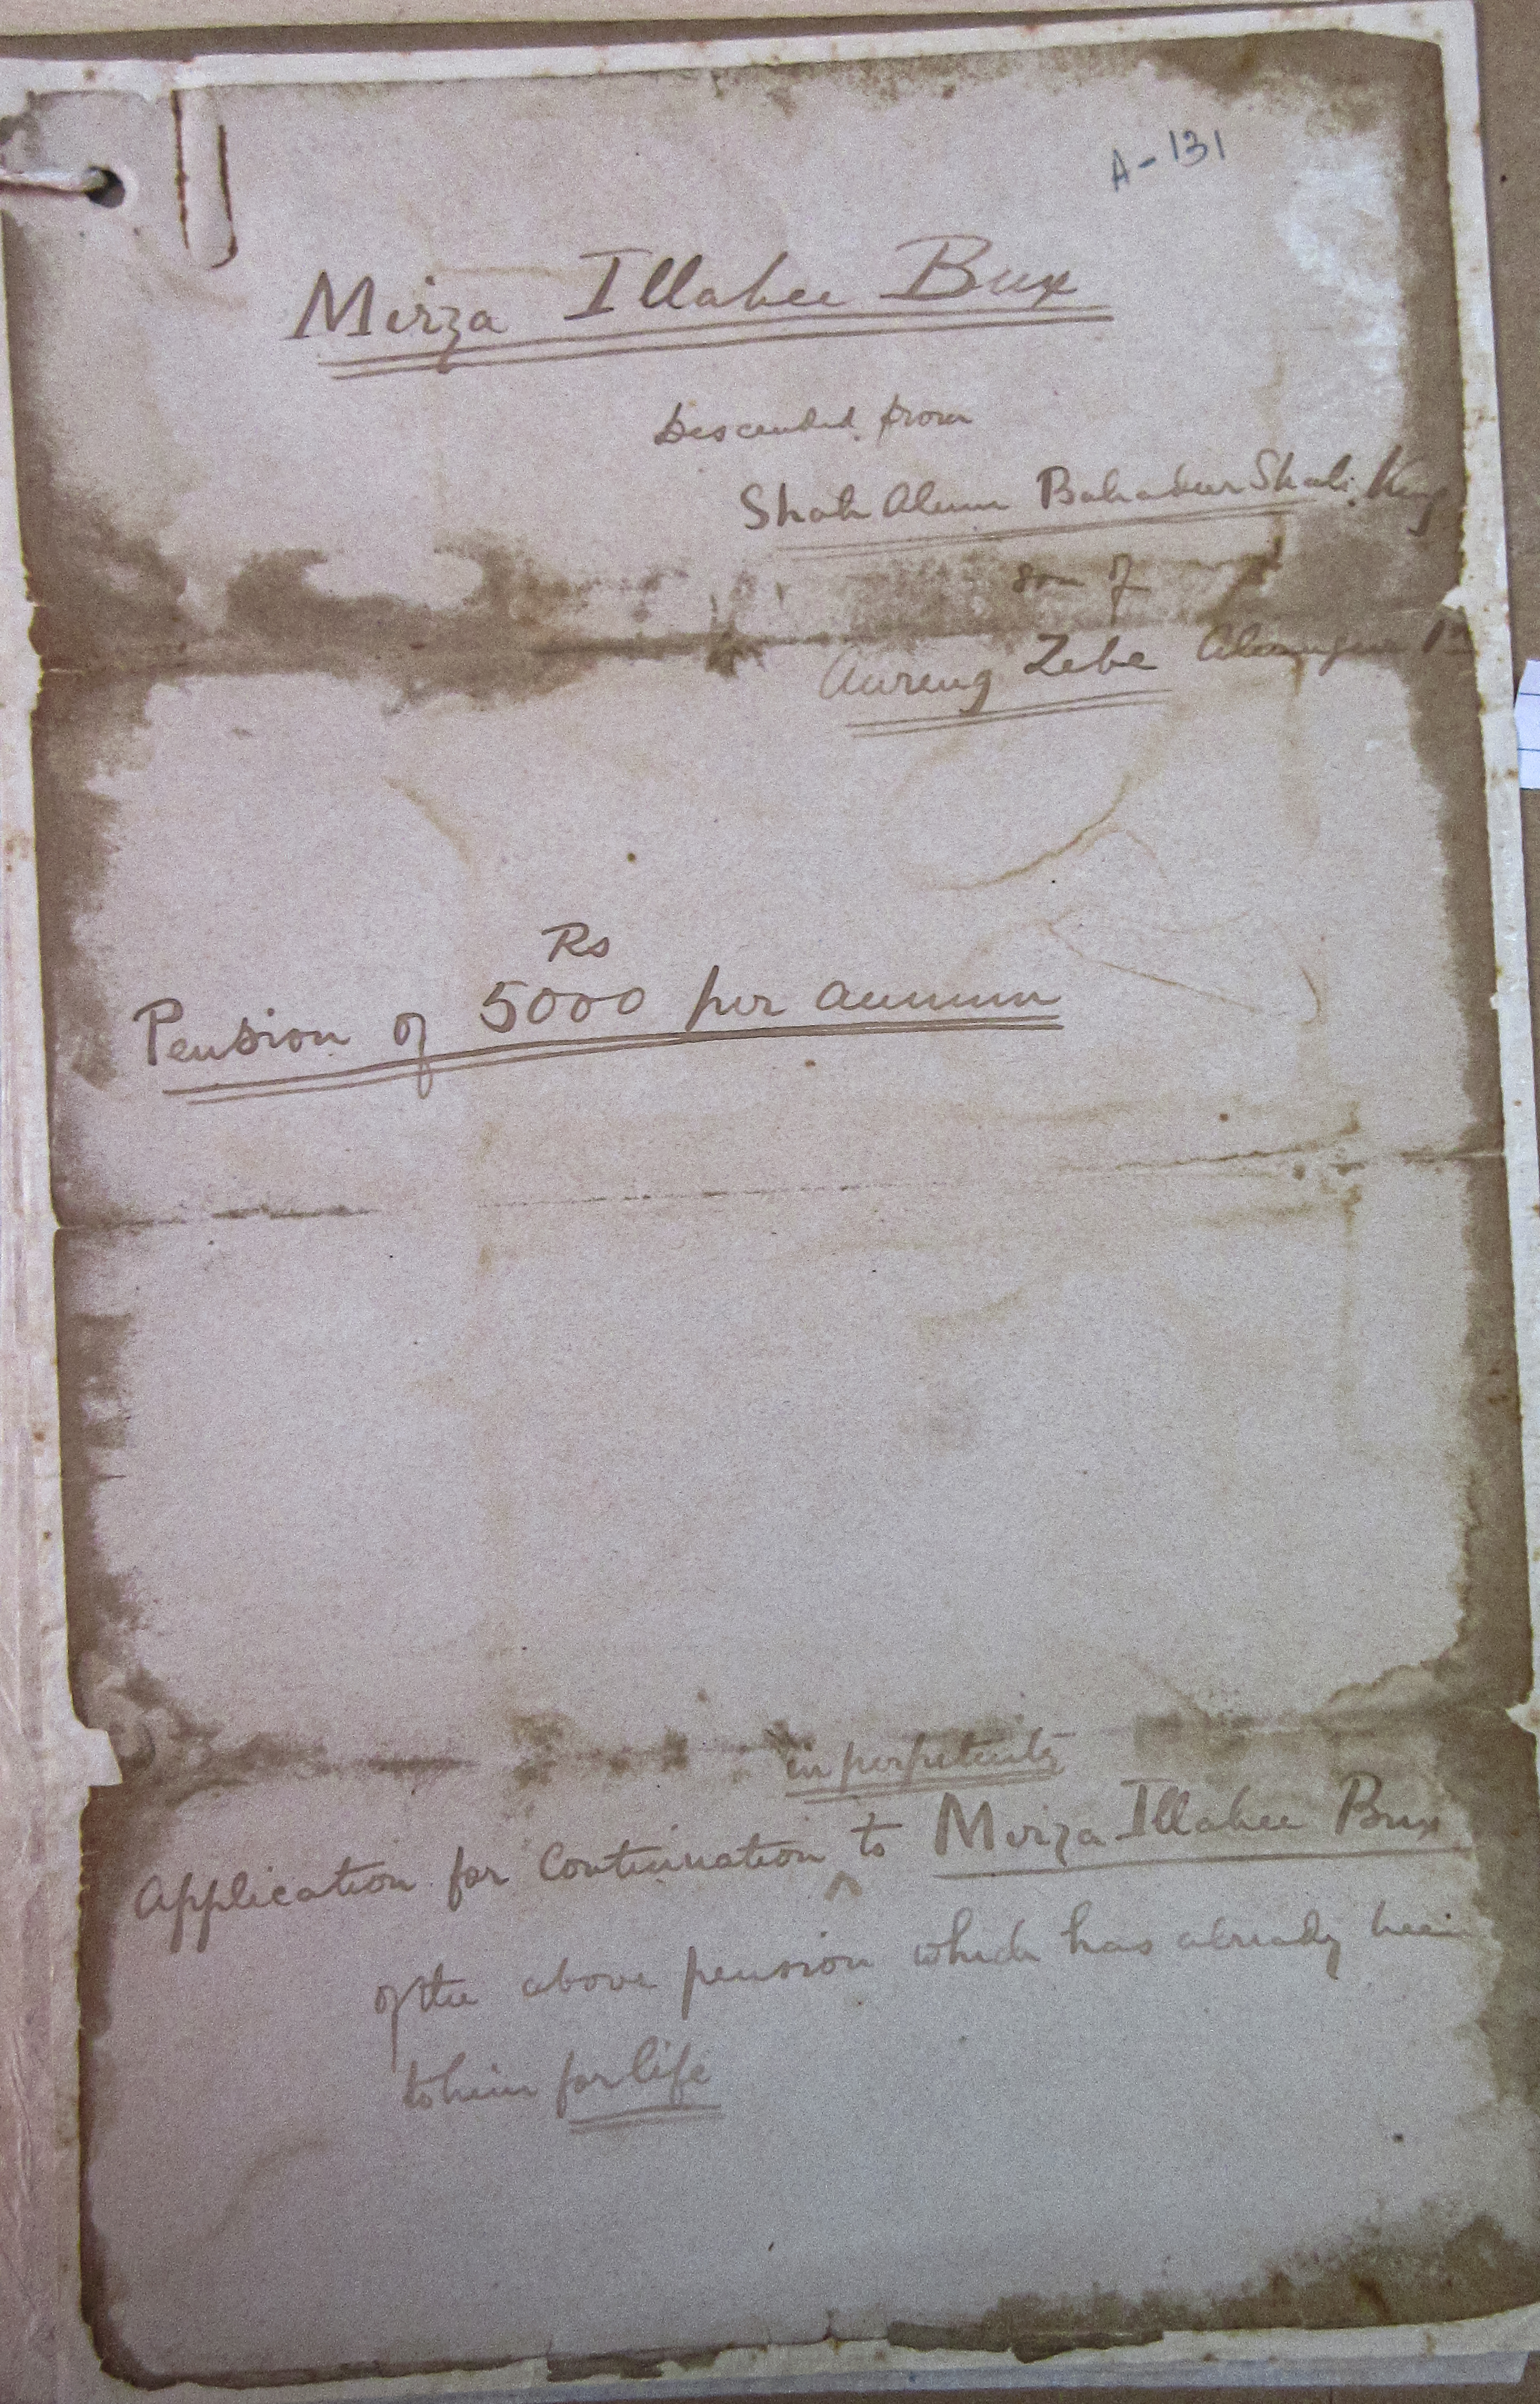 A-131
Mirza Illahee Bux
Descended from
Shah Alum Bahadur Shah King
son of
Aureng Zebe Alemgeer 1st
Rs
Pension of 5000 per annum
in perpetuity
Application for Continuation to ^ Mirza Illahee Bux
of the above pension which has already been
to him for life